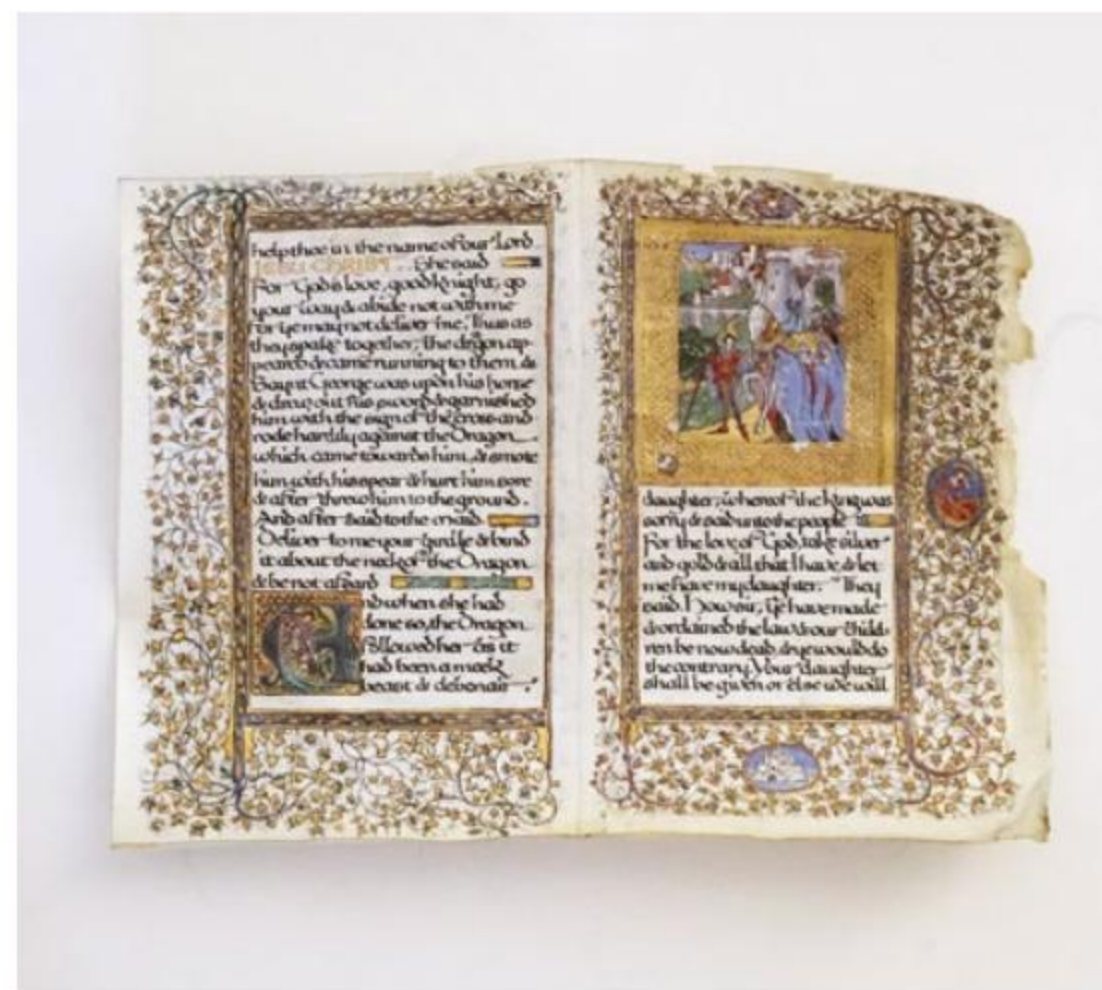 help thee in the name of our Lord
JESU CHRIST. She said
For God's love, good knight, go
your way & abide not with me
for ye may not deliver me. Thus as
they spake together, the dragon ap-
peared & came running to them &
Saynt George was upon his horse
& drew out his sword & garnished
him with the sign of the cross and
rode hardily against the Dragon
which came towards him, & smote
him with his spear & hurt him sore
& after threw him to the ground.
And after said to the maid
Deliver to me your girdle & bind
it about the neck of the Dragon
& be not afeard
And when she had
done so, the Dragon
followed her as it
had been a meek
beast & debonair.
daughter, whereof the king was
sorry & said unto the people
For the love of God, take silver
and gold & all that I have & let
me have my daughter. They
said. How sir, Ye have made
& ordained the law & our child-
ren be now dead, & ye would do
the contrary. Your daughter
shall be given or else we will